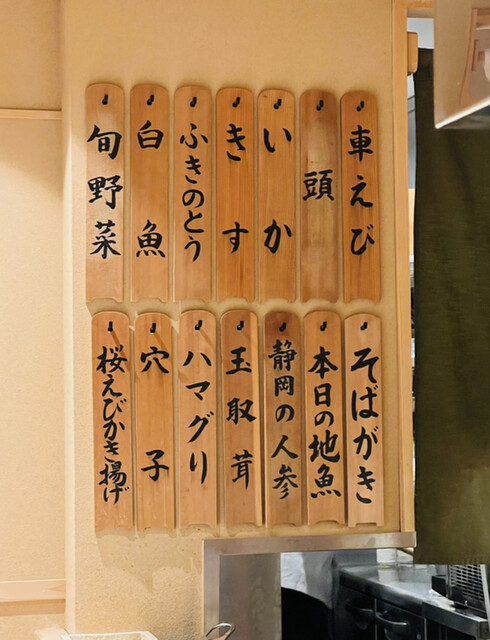 車えび
頭
いか
きす
ふきのとう
白魚
旬野菜
そばがき
本日の地魚
静岡の人参
玉取茸
ハマグリ
穴子
桜えびかき揚げ